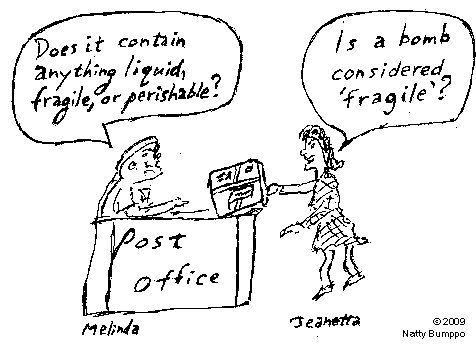 Does it contain
anything liquid,
fragile, or perishable?
Is a bomb
considered
'fragile'?
Post
Office
Melinda
Jeanetta
© 2009
Natty Bumppo